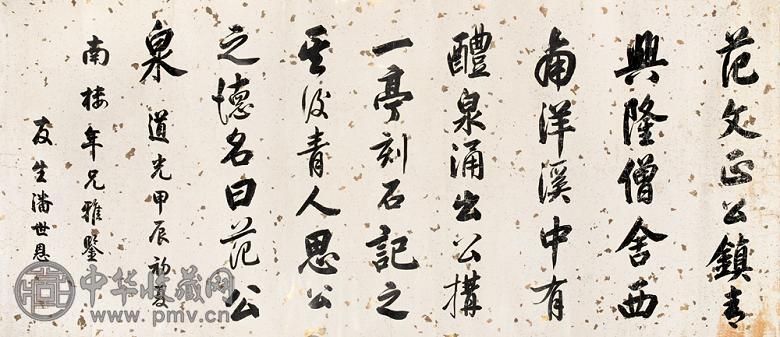 范文正公鎮青
興隆僧舍西
南洋溪中有
醴泉涌出公搆
一亭刻石記之
其後青人思公
之德名曰范公
泉 道光甲辰初夏
南樓年兄雅鑒
友生潘世恩
中华收藏网
www.pmv.cn